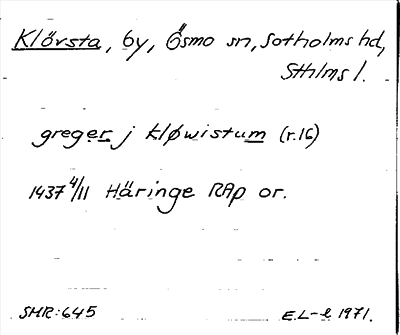 Klövsta, by, Ösmo sn, Sotholms hd,
Sthlms l.
greger j kløwistum (r.16)
1437 4/11 Häringe RAp or.
SMR:645 E.L-l 1971.